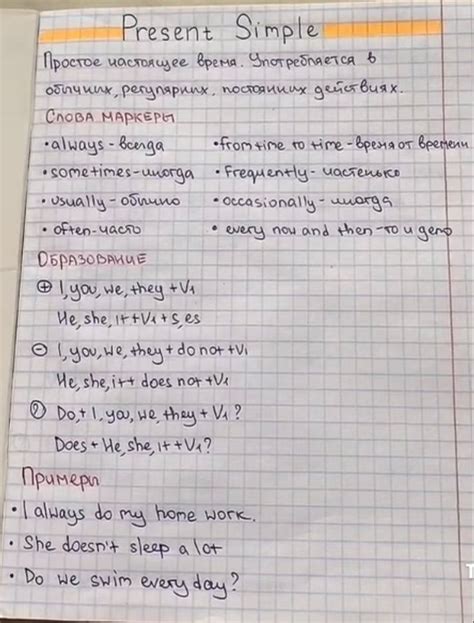 Present Simple
Простое настоящее время. Употребляется в
обычных, регулярных, постоянных действиях.
Слова маркеры
• always - всегда • from time to time - время от времени
• sometimes - иногда • frequently - частенько
• usually - обычно • occasionally - иногда
• often - часто • every now and then - то и дело
Образование
⊕ I, you, we, they + V1
He, she, it + V1 + s, es
⊖ I, you, we, they + do not + V1
He, she, it + does not + V1
? Do, + I, you, we, they + V1 ?
Does + He, she, it + V1?
Примеры
• I always do my home work.
• She doesn't sleep a lot
• Do we swim every day?